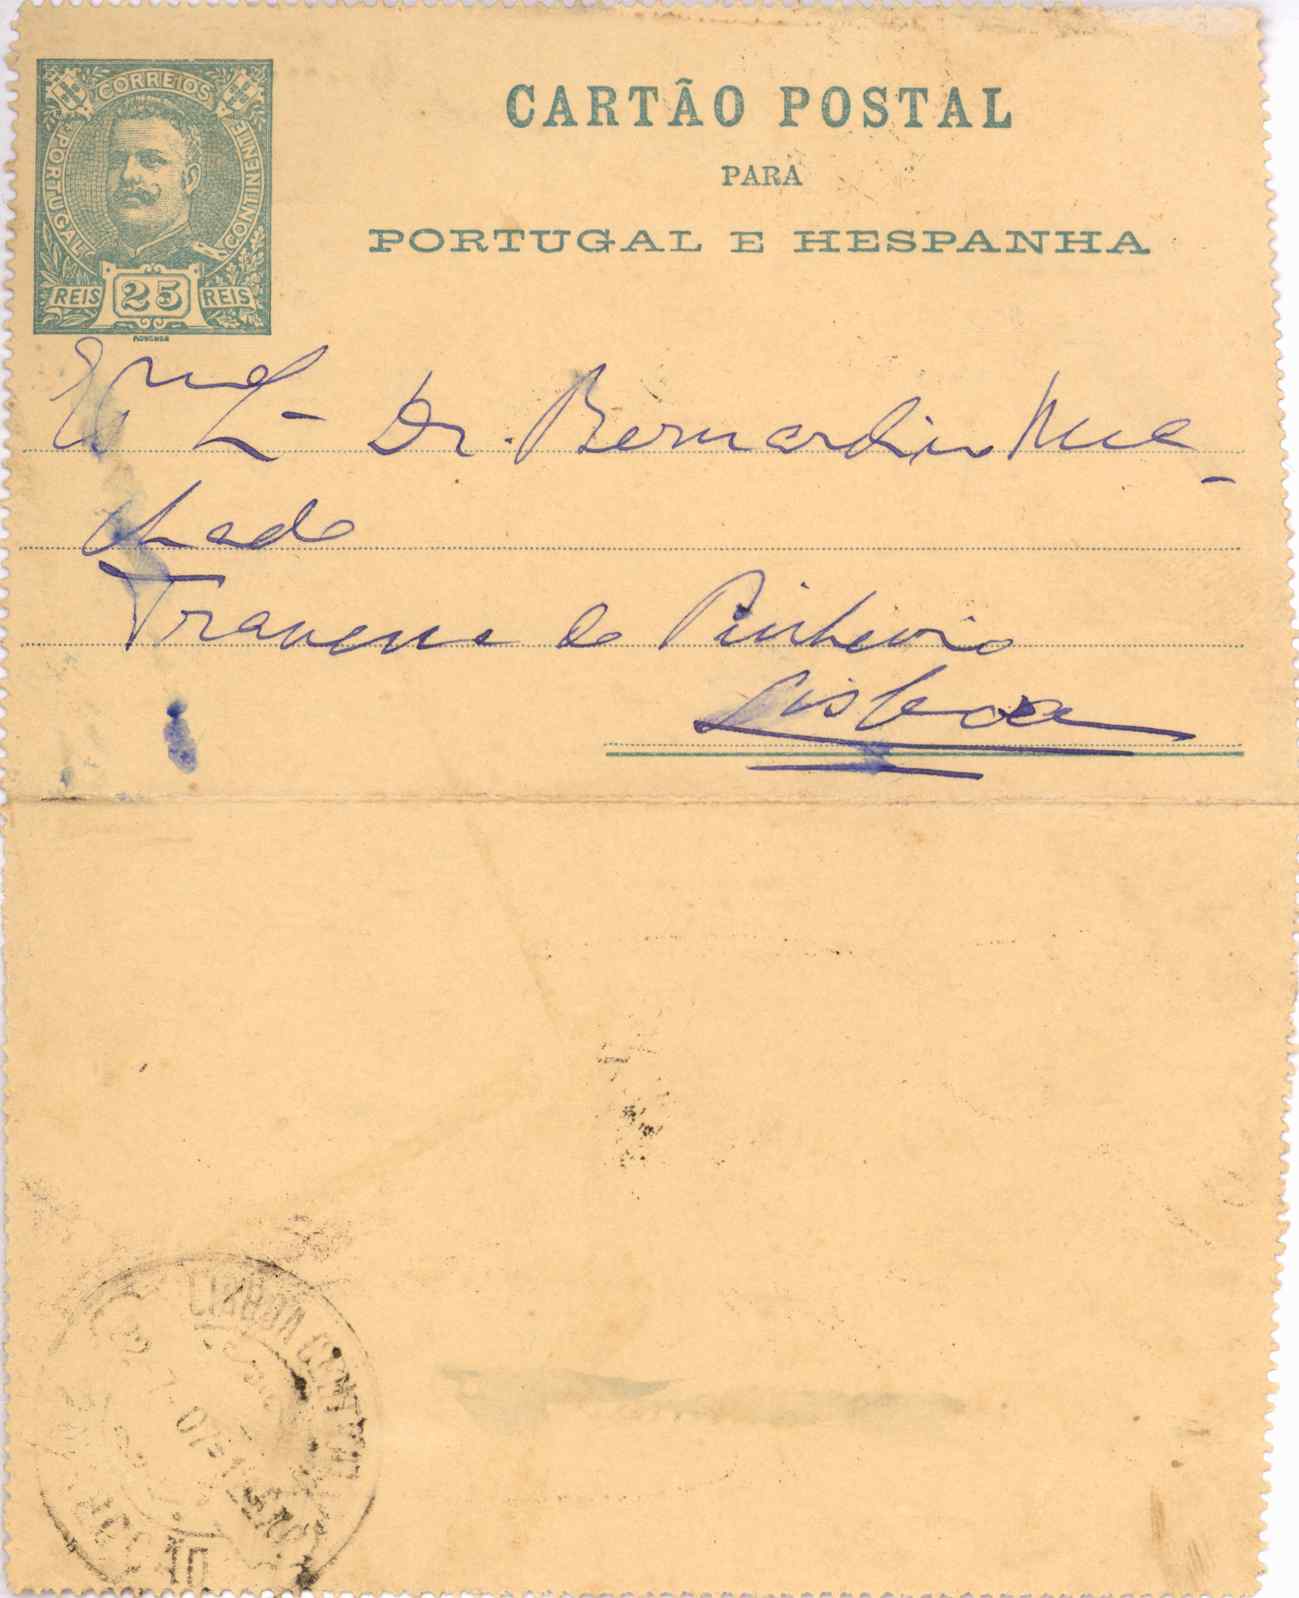 CORREIOS
PORTUGAL
CONTINENTE
REIS 25 REIS
CARTÃO POSTAL
PARA
PORTUGAL E HESPANHA
Exmo Dr. Bernardino Ma-
chado
Travessa do Pinheiro
Lisboa
LISBOA CENTRAL